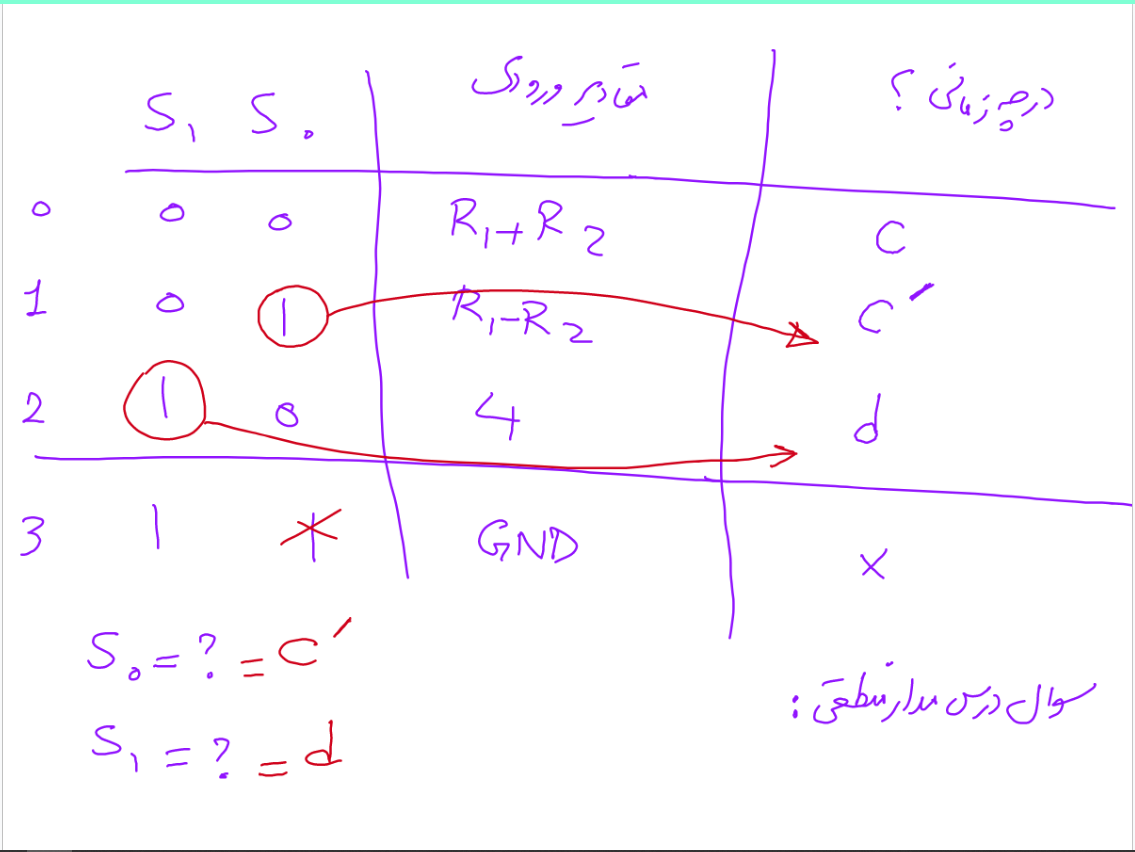 S₁ S₀ مقادیر ورودی در چه زمانی ؟
0 0 0 R₁+R₂ C
1 0 1 R₁-R₂ C′
2 1 0 4 d
3 1 1 GND x
S₀ = ? = C′
S₁ = ? = d
سوال درس مدار منطقی :